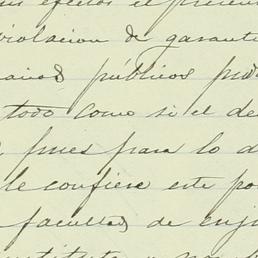 efectos el presen
violacion de garanti
arios públicos pro
todo como si el de
pues para lo d
le confiere este po
facultad de enju